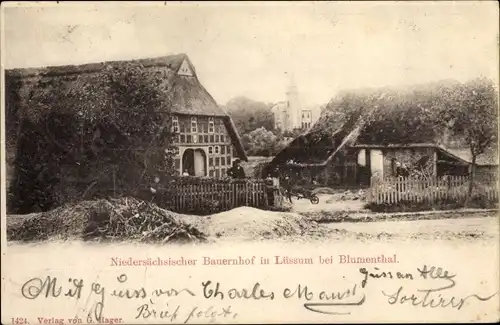 Niedersächsischer Bauernhof in Lüssum bei Blumenthal.
Mit Gruss von Charles Maur
Brief folgt.
Grüssan Alle
1424. Verlag von G. Hager.